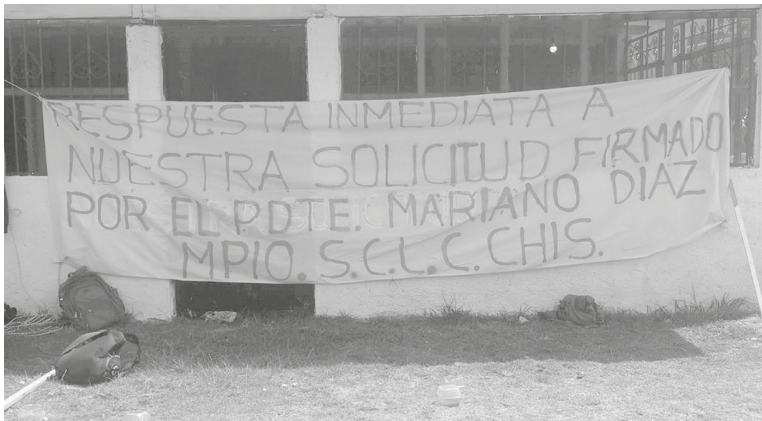 RESPUESTA INMEDIATA A
NUESTRA SOLICITUD FIRMADO
POR EL P.DTE. MARIANO DIAZ
MPIO. S.C.L.C. CHIS.